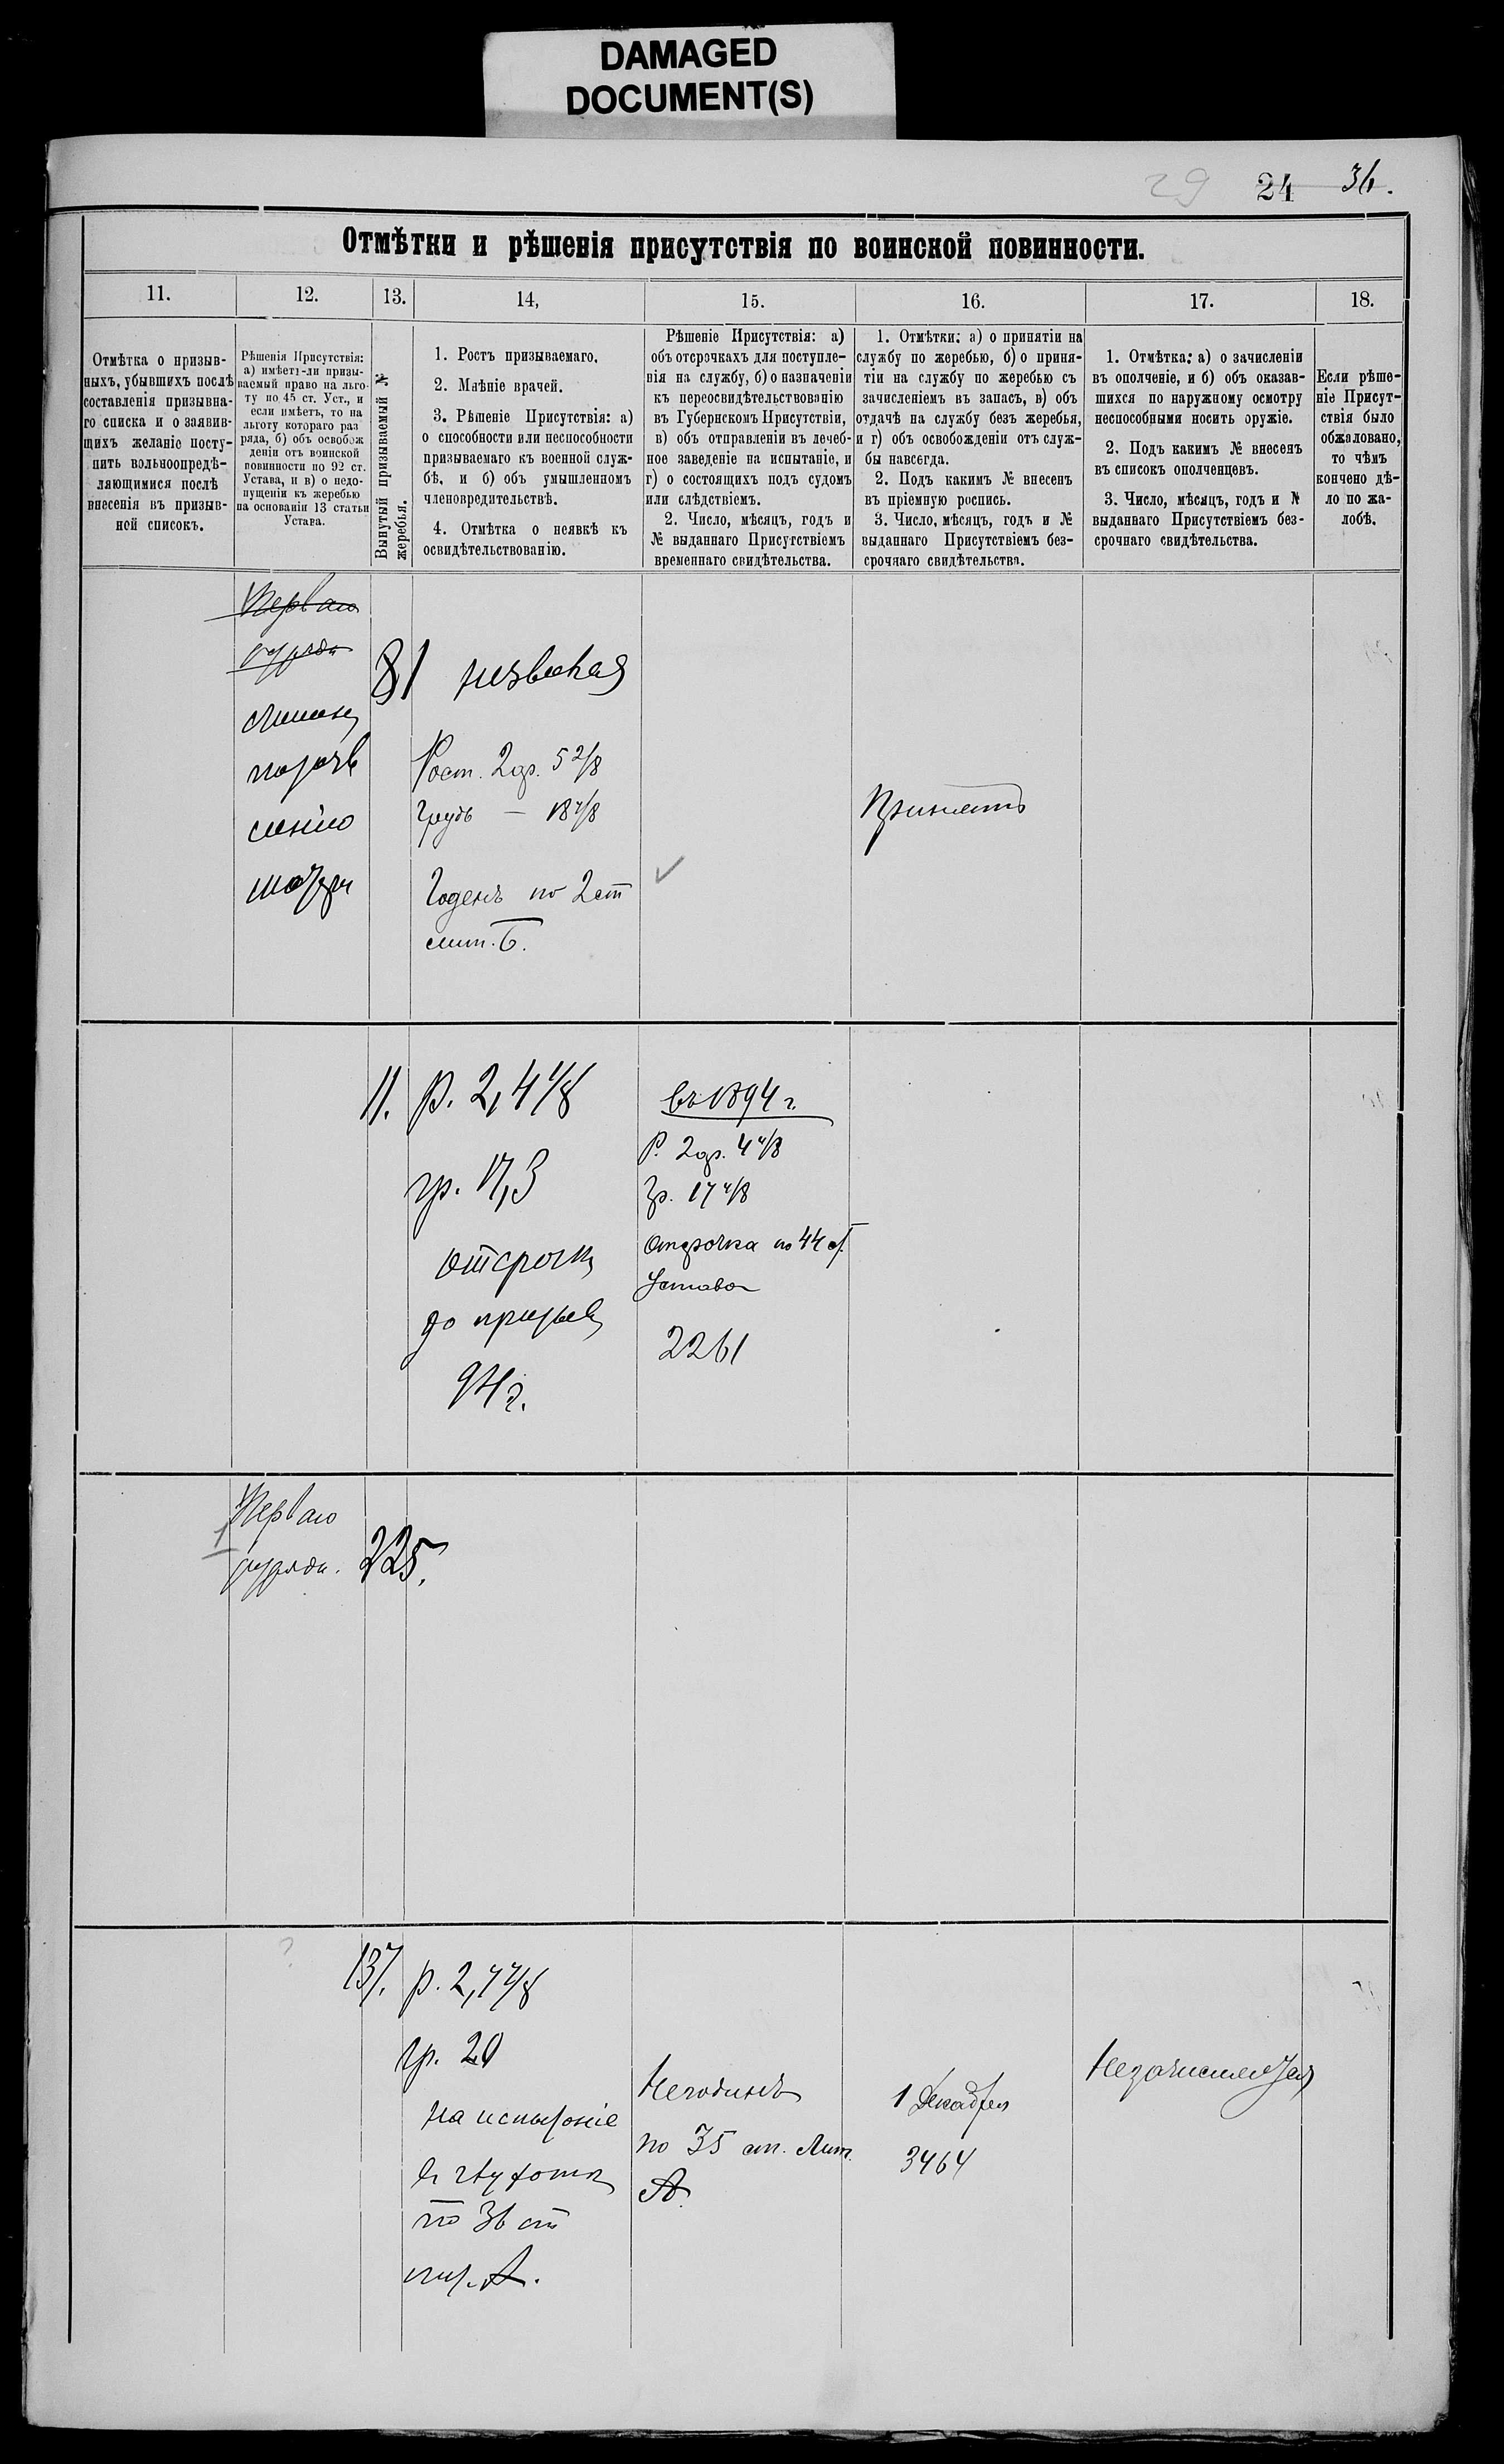 DAMAGED
DOCUMENT(S)
29 24 36.
Отмѣтки и рѣшенія присутствія по воинской повинности.
11. 12. 13. 14, 15. 16. 17. 18.
Отмѣтка о призыв-
ныхъ, убывшихъ послѣ
составленія призывна-
го списка и о заявив-
щихъ желаніе посту-
пить вольноопредѣ-
ляющимися послѣ
внесенія въ призыв-
ной списокъ.
Рѣшенія Присутствія:
а) имѣетъ-ли призы-
ваемый право на льго-
ту по 45 ст. Уст., и
если имѣетъ, то на
льготу котораго раз
ряда, б) объ освобож
деніи отъ воинской
повинности по 92 ст.
Устава, и в) о недо-
пущеніи къ жеребью
на основаніи 13 статьи
Устава.
Вынутый призываемый №
жеребья.
1. Ростъ призываемаго.
2. Мнѣніе врачей.
3. Рѣшеніе Присутствія: а)
о способности или неспособности
призываемаго къ военной служ-
бѣ, и б) объ умышленномъ
членовредительствѣ.
4. Отмѣтка о неявкѣ къ
освидѣтельствованію.
Рѣшеніе Присутствія: а)
объ отсрочкахъ для поступле-
нія на службу, б) о назначеніи
къ переосвидѣтельствованію
въ Губернскомъ Присутствіи,
в) объ отправленіи въ лечеб-
ное заведеніе на испытаніе, и
г) о состоящихъ подъ судомъ
или слѣдствіемъ.
2. Число, мѣсяцъ, годъ и
№ выданнаго Присутствіемъ
временнаго свидѣтельства.
1. Отмѣтки: а) о принятіи на
службу по жеребью, б) о приня-
тіи на службу по жеребью съ
зачисленіемъ въ запасъ, в) объ
отдачѣ на службу безъ жеребья,
и г) объ освобожденіи отъ служ-
бы навсегда.
2. Подъ какимъ № внесенъ
въ пріемную роспись.
3. Число, мѣсяцъ, годъ и №
выданнаго Присутствіемъ без-
срочнаго свидѣтельства.
1. Отмѣтка: а) о зачисленіи
въ ополченіе, и б) объ оказав-
шихся по наружному осмотру
неспособными носить оружіе.
2. Подъ какимъ № внесенъ
въ списокъ ополченцевъ.
3. Число, мѣсяцъ, годъ и №
выданнаго Присутствіемъ без-
срочнаго свидѣтельства.
Если рѣше-
ніе Присут-
ствія было
обжаловано,
то чѣмъ
кончено дѣ-
ло по жа-
лобѣ.
Перваго
разряда
81
Рост. 2 ар. 5 2/8
Грудь — 18 4/8
Годенъ по 2 ст
лит. Б.
Принятъ
11.
р. 2,4 4/8
гр. 17,3
отсрочка
до призыва
94 г.
въ 1894 г.
Р. 2 ар. 4 4/8
Гр. 17 4/8
Отсрочка по 44 ст.
Устава
2261
1
Перваго
разряда.
225.
?
137.
р. 2,7 4/8
гр. 20
на испытаніе
по 36 ст
лит. А.
Негоденъ
по 35 ст. Лит.
А.
1 Декабря
3464